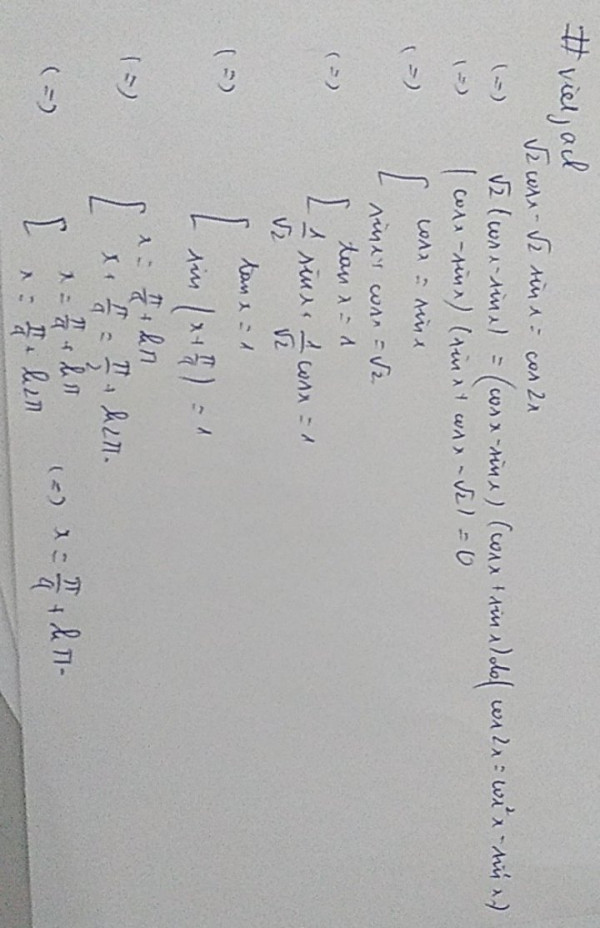 #vietjack
√2 cosx - √2 sinx = cos2x
(=) √2 (cosx - sinx) = (cosx - sinx) (cosx + sinx) do( cos2x = cos²x - sin²x)
(=) (cosx - sinx) (sinx + cosx - √2) = 0
(=) [ cosx = sinx
sinx + cosx = √2
(=) [ tanx = 1
1/√2 sinx + 1/√2 cosx = 1
(=) [ tanx = 1
sin (x + π/4) = 1
(=) [ x = π/4 + kπ
x + π/4 = π/2 + k2π.
(=) [ x = π/4 + kπ (=) x = π/4 + kπ.
x = π/4 + k2π